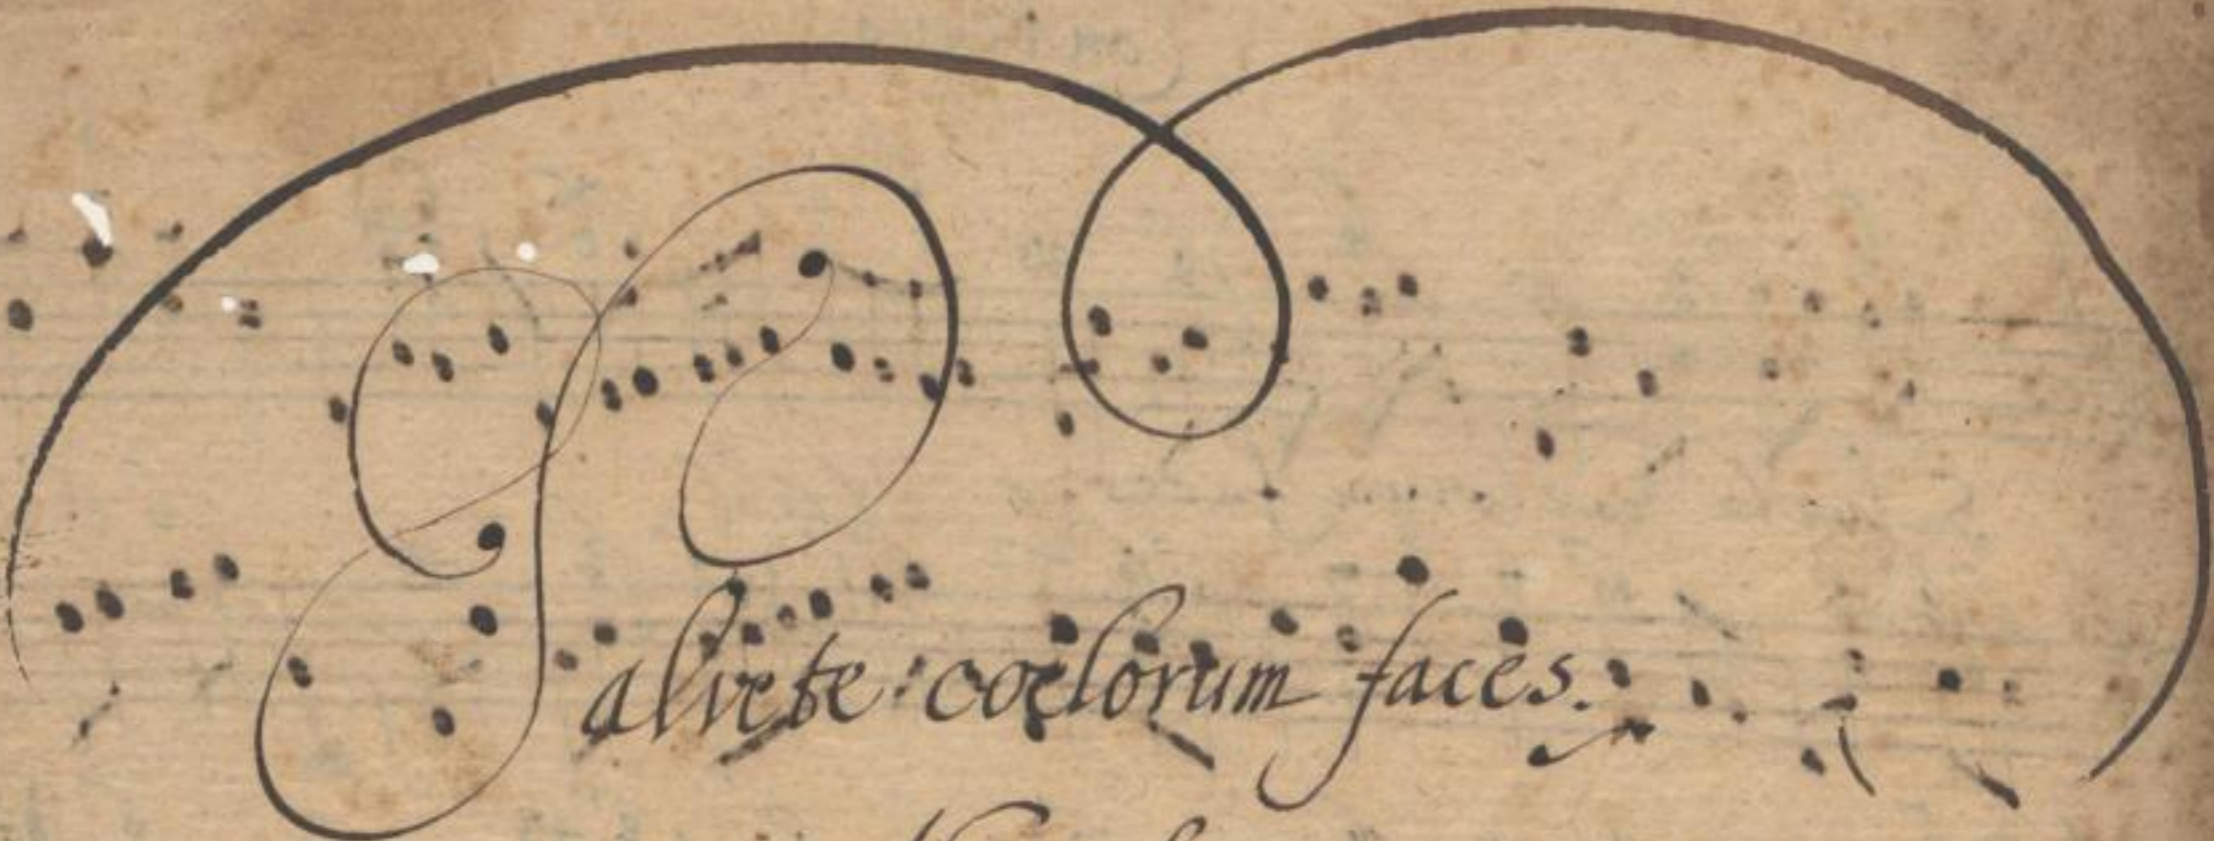 Salvete coelorum faces.